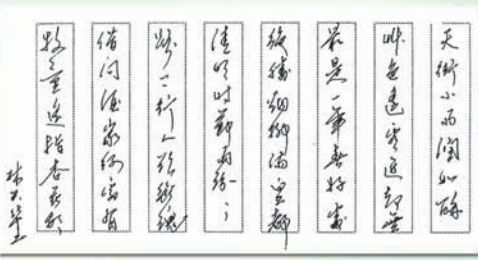 天街小雨润如酥
草色遥看近却無
最是一年春好处
绝胜烟柳满皇都
清明时节雨纷々
路上行人欲断魂
借问酒家何处有
牧童遥指杏花村